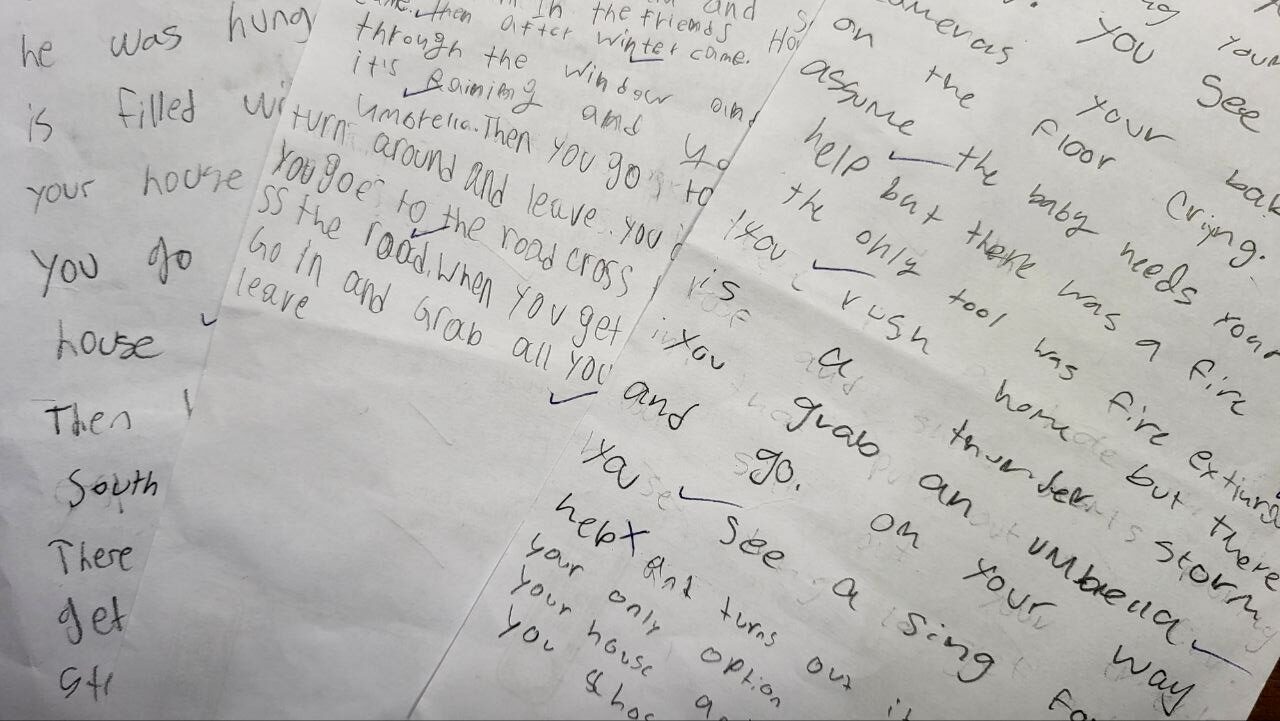 he was hung
is filled wi
your house
you go
house
Then
South
There
get
and
in the friends
then after winter came.
through the window and
it's Raining and yo
Umbrella. Then you go to
turn around and leave. you
You goes to the road cross
ss the road. when you get
Go in and Grab all you
leave
your
cameras you see
on the your bab
assume the floor crying.
help the baby needs your
the only but there was a fire
you tool was fire extingu
is rush home but there
a thunder storm
you grab an umbrella
and go. on your way
you see a sing for
help And turns out it
your only option
your house
you